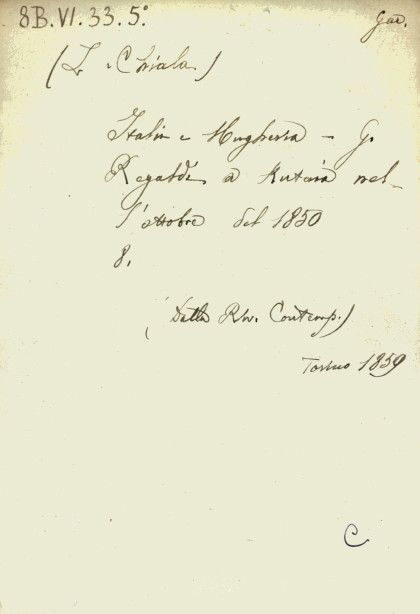 8B.VI.33.5°
Gae.
(L. Chiala)
Italia e Ungheria - G.
Regaldi a Kutaia nel-
l'ottobre del 1850
8.
(Dalla Riv. Contemp.)
Torino 1859
C